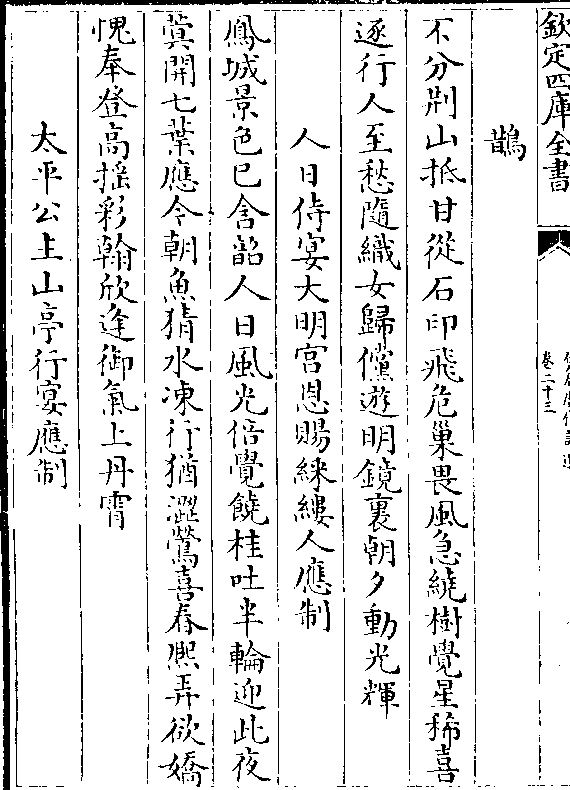 欽定四庫全書
卷二十三
鵲
不分荆山抵甘從石印飛危巢畏風急繞樹覺星稀喜
逐行人至愁隨織女歸儻遊明鏡裏朝夕動光輝
人日侍宴大明宫恩賜綵縷人應制
鳳城景色已含韶人日風光倍覺饒桂吐半輪迎此夜
蓂開七葉應今朝魚猜水凍行猶澀鶯喜春熙弄欲嬌
愧奉登高揺彩翰欣逢御氣上丹霄
太平公主山亭行宴應制